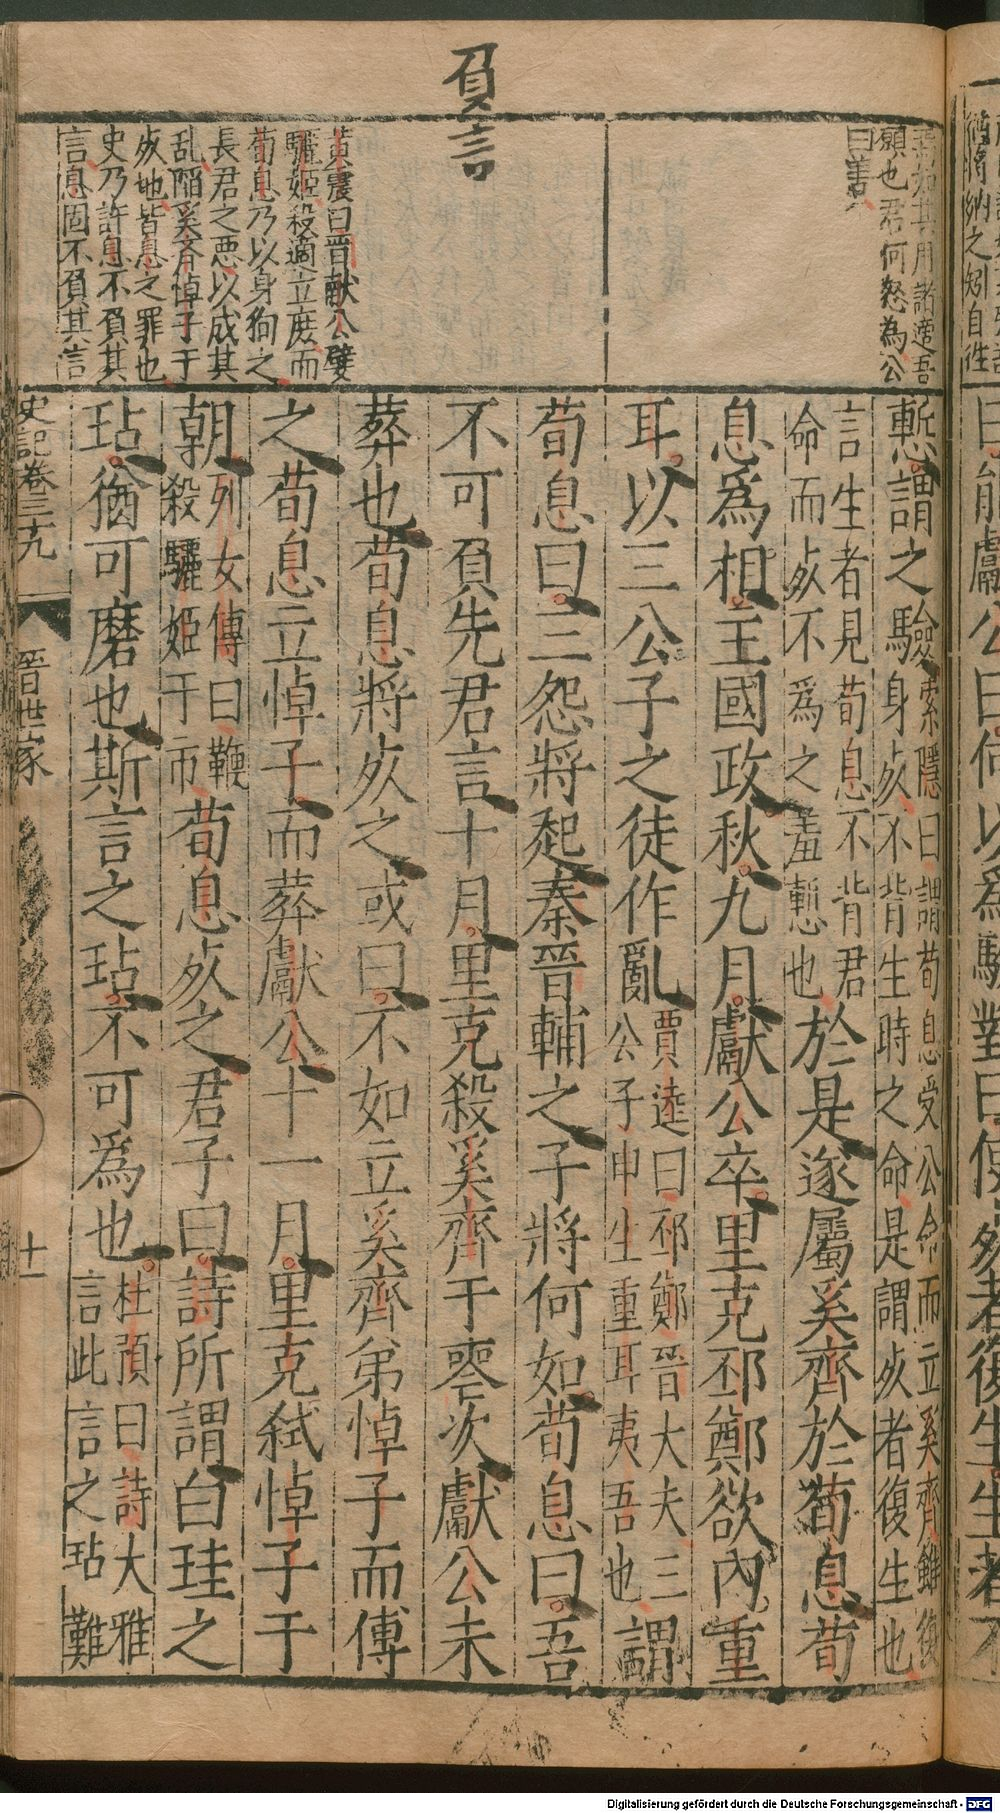 負言
焉如其用諸適吾
願也君何怒為公
曰善
黃震曰晉獻公嬖
驪姬殺適立庶而
荀息乃以身狥之
長君之惡以成其
乱陷奚斉悼子于
死地皆息之罪也
史乃許息不負其
言息固不負其言
慙謂之驗索隱曰謂荀息受公命而立奚齊雖復
身死不背生時之命是謂死者復生也
言生者見荀息不背君
命而死不為之羞慙也於是遂屬奚齊於荀息荀
息爲相主國政秋九月獻公卒里克邳鄭欲內重
耳以三公子之徒作亂賈逵曰邳鄭晉大夫三
公子申生重耳夷吾也謂
荀息曰三怨將起秦晉輔之子將何如荀息曰吾
不可負先君言十月里克殺奚齊于喪次獻公未
葬也荀息將死之或曰不如立奚齊弟悼子而傅
之荀息立悼子而葬獻公十一月里克弒悼子于
朝列女傳曰鞭
殺驪姬于市荀息死之君子曰詩所謂白珪之
玷猶可磨也斯言之玷不可爲也杜預曰詩大雅
言此言之玷難
史記卷三十九
晉世家
十一